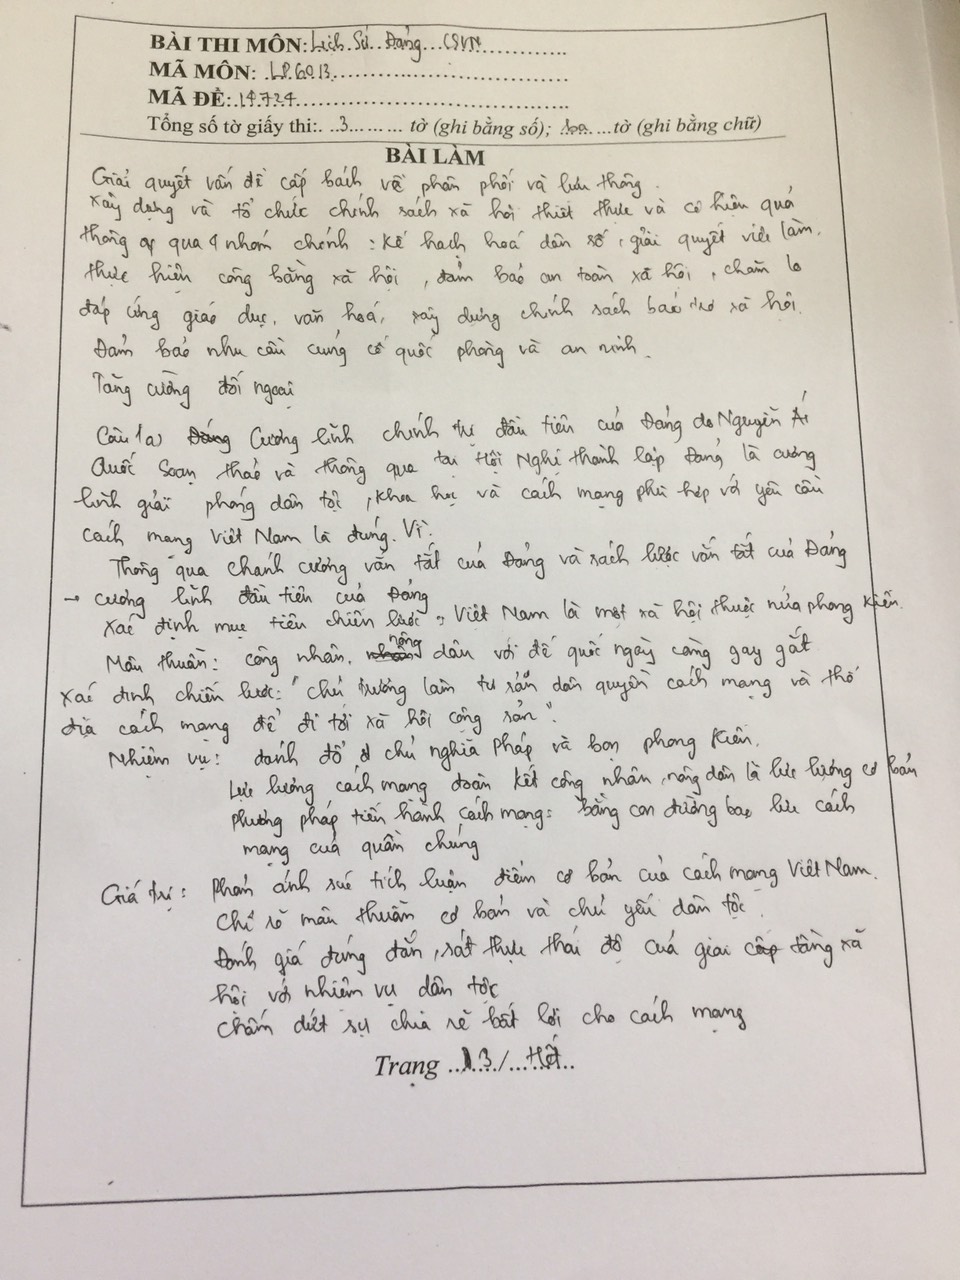 BÀI THI MÔN: Lịch Sử Đảng CSVN
MÃ MÔN: LP6013
MÃ ĐỀ: 14724
Tổng số tờ giấy thi: 3 tờ (ghi bằng số); tờ (ghi bằng chữ)
BÀI LÀM
Giải quyết vấn đề cấp bách về phân phối và lưu thông.
Xây dựng và tổ chức chính sách xã hội thiết thực và có hiệu quả
thông qua 4 nhóm chính: Kế hoạch hoá dân số, giải quyết việc làm,
thực hiện công bằng xã hội, đảm bảo an toàn xã hội, chăm lo
đáp ứng giáo dục, văn hoá, xây dựng chính sách bảo trợ xã hội.
Đảm bảo nhu cầu củng cố quốc phòng và an ninh.
Tăng cường đối ngoại
Câu 1a) Cương lĩnh chính trị đầu tiên của Đảng do Nguyễn Ái
Quốc Soạn thảo và thông qua tại Hội Nghị thành lập Đảng là cương
lĩnh giải phóng dân tộc, khoa học và cách mạng phù hợp với yêu cầu
cách mạng Việt Nam là đúng. Vì:
Thông qua chánh cương vắn tắt của Đảng và sách lược vắn tắt của Đảng
→ cương lĩnh đầu tiên của Đảng
Xác định mục tiêu chiến lược: Việt Nam là một xã hội thuộc nửa phong kiến.
Mâu thuẫn: công nhân, nông dân với đế quốc ngày càng gay gắt
Xác định chiến lược: "chủ trương làm tư sản dân quyền cách mạng và thổ
địa cách mạng để đi tới xã hội cộng sản".
Nhiệm vụ: đánh đổ chủ nghĩa Pháp và bọn phong kiến.
Lực lượng cách mạng đoàn kết công nhân, nông dân là lực lượng cơ bản
Phương pháp tiến hành cách mạng: bằng con đường bạo lực cách
mạng của quần chúng
Giá trị: Phản ánh súc tích luận điểm cơ bản của cách mạng Việt Nam.
Chỉ rõ mâu thuẫn cơ bản và chủ yếu dân tộc.
Đánh giá đúng đắn, sát thực thái độ của giai tầng xã
hội với nhiệm vụ dân tộc
Chấm dứt sự chia rẽ bất lợi cho cách mạng
Trang 3 / Hết